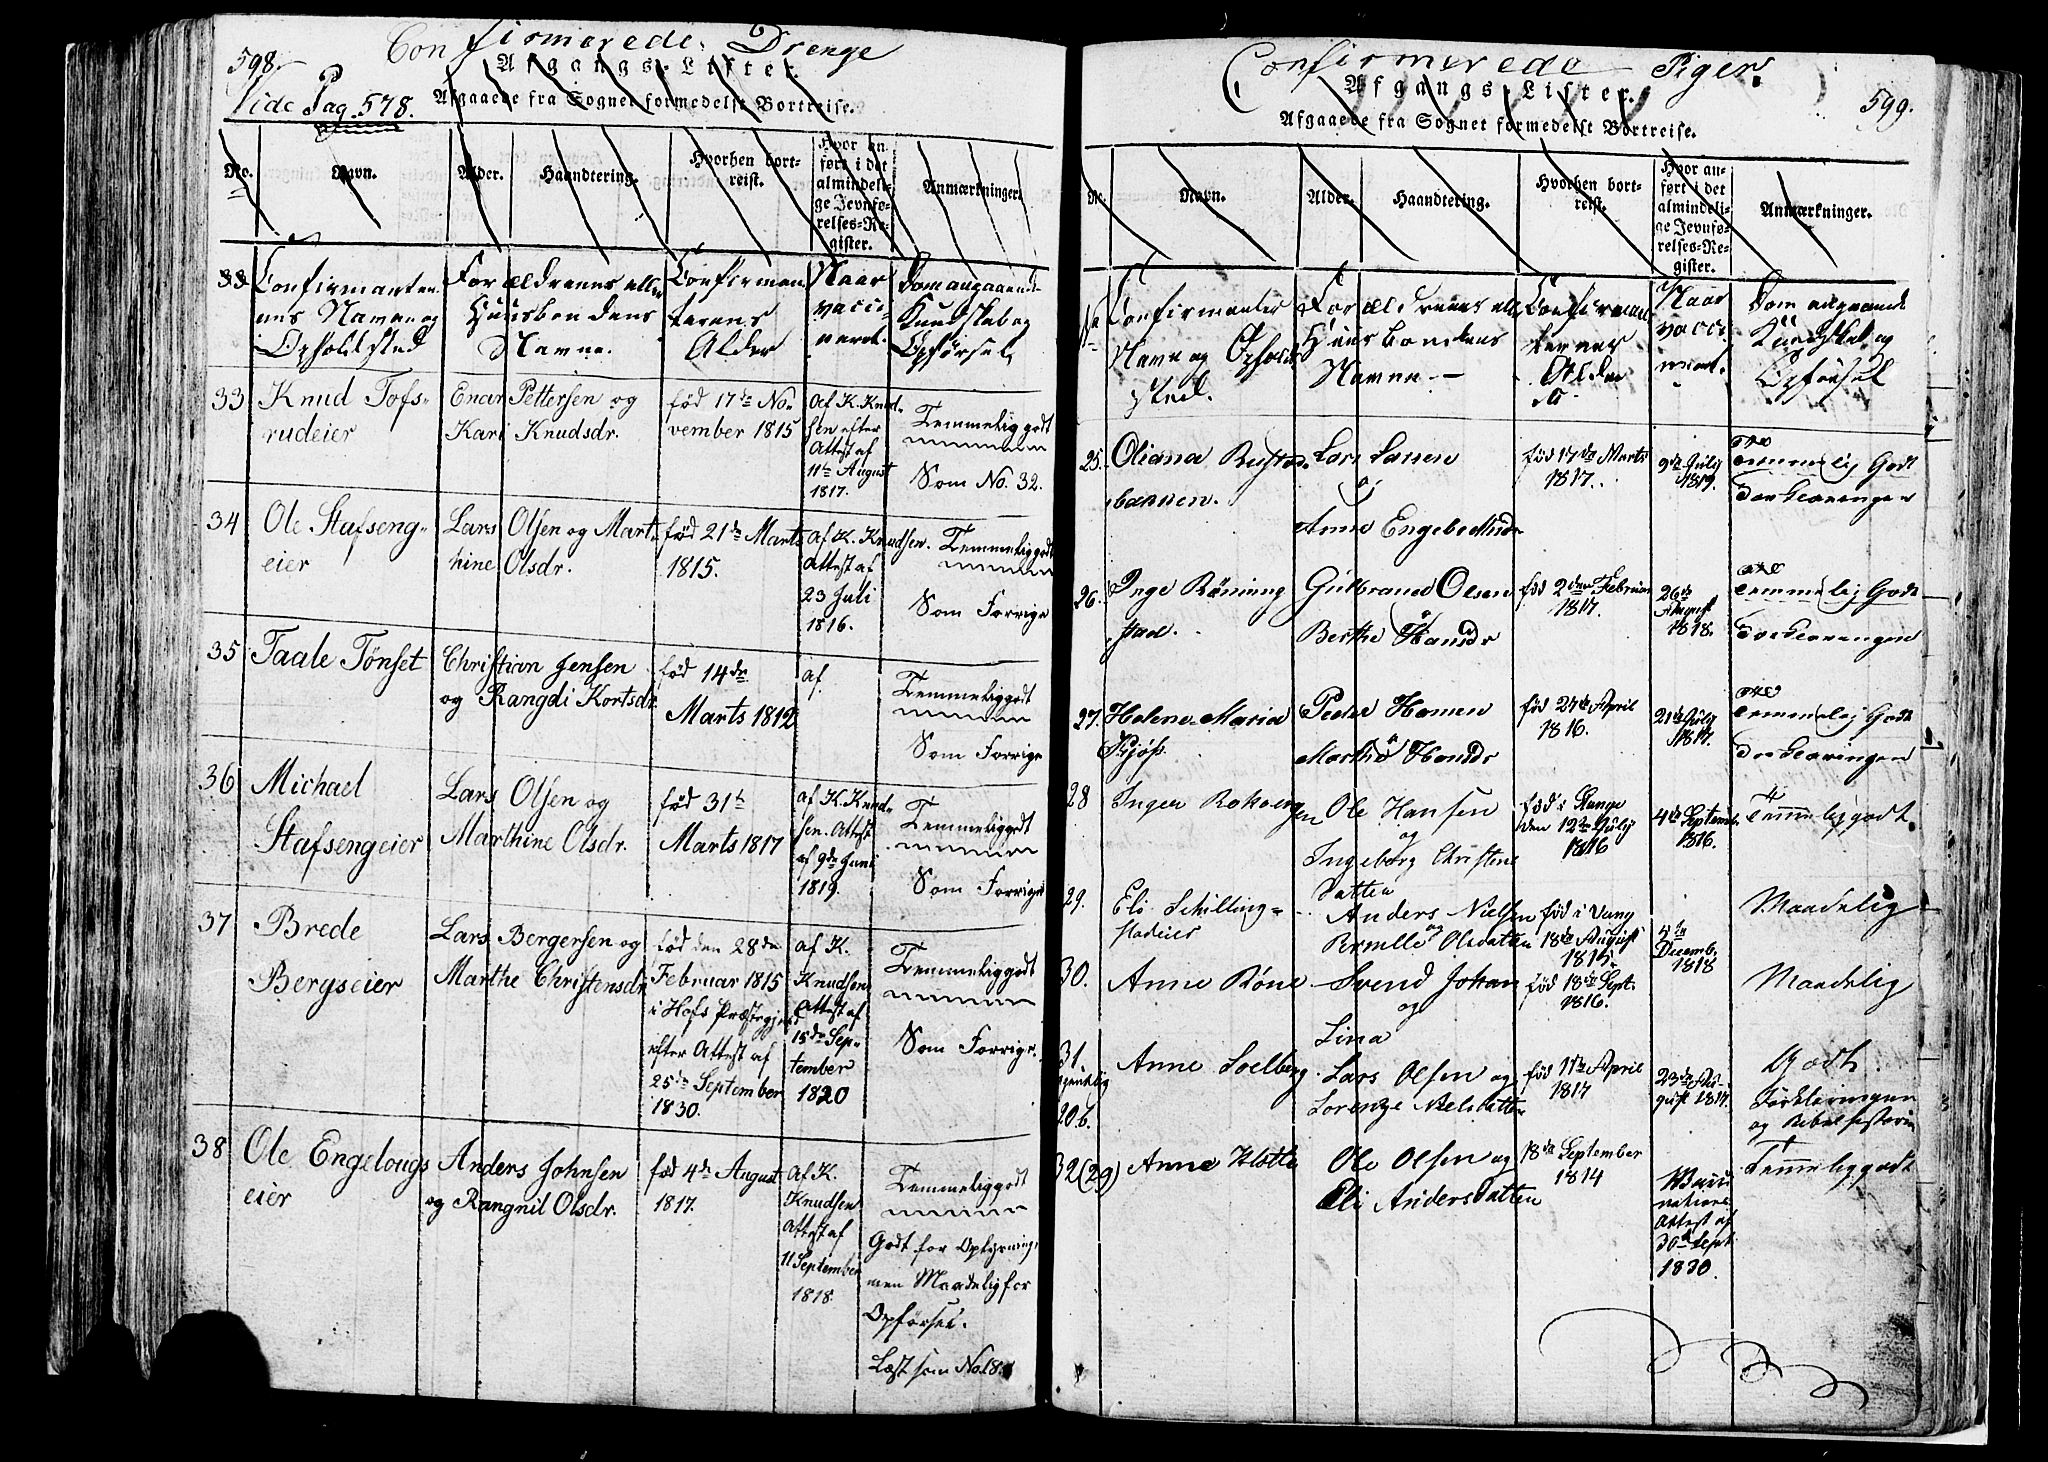 598.
Confirmerede Drenge
Afgangs-Lister.
Vide Pag. 578.
Afgaaede fra Sognet formedelst Bortreise.
No.
Navn.
Alder.
Haandtering.
Hvorhen bort-
reist.
Hvor an-
ført i det
almindeli-
ge Jevnfø-
relses-Re-
gister.
Anmærkninger.
Confirmanter-
nes Navne og
Opholdsted
Forældrenes eller
Huusbondens
Navne.
Confirman-
ternes
Alder
Naar
vacci-
neret.
Dom angaaende
Kundskab og
Opførsel,
33
Knud Tofs-
rudeier
Enar Pettersen og
Kari Knudsdr.
fød 17de No-
vember 1815
Af K. Knud-
sen efter
Attest af
11te August
1817.
Temmelig godt
Som No. 32.
34
Ole Stafseng-
eier
Lars Olsen og Mart-
hine Olsdr.
fød 21de Marts
1815.
af K. Knudsen.
Attest af
23 Juli
1816.
Temmelig godt
Som Forrige
35
Taale Tønset
Christian Jensen
og Rangdi Kortsdr.
fød 14de
Marts 1812
af
Temmelig godt
Som Forrige
36
Michael
Stafsengeier
Lars Olsen og
Marthine Olsdr.
fød 31te
Marts 1817
af K. Knud-
sen. Attest
af 9de Juni
1819.
Temmelig godt
Som Forrige
37
Brede
Bergseier
Lars Bergersen og
Marthe Christensdr.
fød den 28de
Februar 1815
i Hofs Præstegjeld
efter Attest af
25de September
1830.
af K.
Knudsen
Attest af
15de Sep-
tember
1820
Temmelig godt
Som Forrige.
38
Ole Engelougs
eier
Anders Johnsen
og Rangnil Olsdr.
fød 4de August
1817.
Af K.
Knudsen
Attest af
11 September
1818.
Temmelig godt
Godt for Oplysning,
men Maadelig for
Opførsel.
Læst som No. 18.
Confirmerede Piger.
Afgangs-Lister.
599.
Afgaaede fra Sognet formedelst Bortreise.
No.
Navn.
Alder.
Haandtering.
Hvorhen bort-
reist.
Hvor an-
ført i det
almindeli-
ge Jevnfø-
relses-Re-
gister.
Anmærkninger.
No
Confirmanter
Navne og Opholds
sted.
Forældrenes ell
Huusbondens
Navne
Confirman
ternes
Alder
Naar
vacci
neret.
Dom angaaende
Kundskab og
Opførsel
25.
Oliana Rustad
bakken.
Lars Larsen
og
Anne Engebretsdr
fød 17de Marts
1817.
9de July
1819.
Temmelig Godt
Forklaringen
26.
Inge Rönning
stad.
Gulbrand Olsen
og
Berthe Hansdr
fød 2den Februar
1817.
26de
August
1818.
Temmelig Godt
Forklaringen
27.
Helene Maria
Peder Hansen
og
Marthe Hansdr
fød 24de April
1816.
21de July
1817.
Temmelig Godt
Forklaringen
28
Inger Rokbergen
Ole Hansen
og
Ingeborg Christens
datter
fød i Stange
den 12te July
1816
4de Septemb.
1816.
Temmelig godt.
29.
Eli Schilling-
stadeier
Anders Nielsen
og
Pernille Olsdatter
fød i Vang
18de August
1815.
4de
Decemb.
1818
Maadelig
30.
Anne Röne
Svend Johan
og
Lina
fød 18de Sept.
1816.
Maadelig
31.
20b.
Anne Soelberg
Lars Olsen og
Lorenze Nielsdatter
fød 11te April
1817
23de Au-
gust 1817.
Godt.
Forklaringen
og Bibelhistorie
32 (29)
Anne Klotte
Ole Olsen og
Eli Andersdatter
18de September
1814
Vacci
nations
Attest af
30te Sept
1830.
Temmelig godt